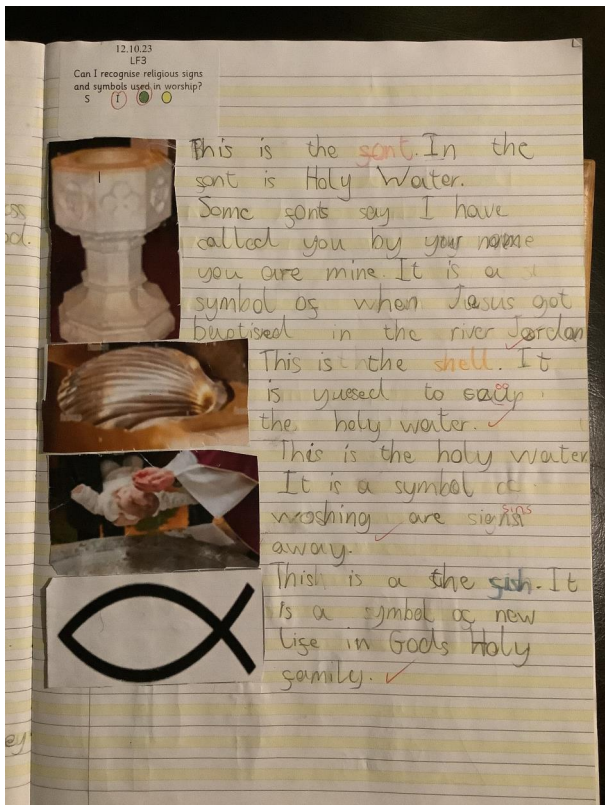 12.10.23
LF3
Can I recognise religious signs
and symbols used in worship?
S I
This is the font. In the
font is Holy Water.
Some fonts say I have
called you by your name
you are mine. It is a
symbol of when Jesus got
baptised in the river Jordan
This is the shell. It
is yused to
oo
the holy water.
This is the holy water
It is a symbol of
washing are
sins
away.
Thish is a the fish. It
is a symbol of new
life in Gods Holy
family.